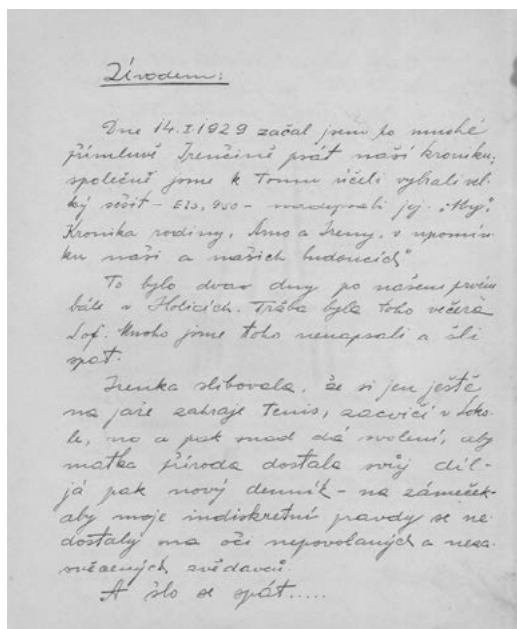 Úvodem:
Dne 14.I.1929 začal jsem po mnohé
přímluvě Irenčině psát naší kroniku;
společně jsme k tomu účeli vybrali vel-
ký sešit - - nadepsali jej: „My".
Kronika rodiny, Arno a Ireny, v upomín-
ku naši a našich budoucích"
To bylo dva dny po našem prvém
bále v Holicích. Tréba byla toho večera
Lof. Mnoho jsme toho nenapsali a šli
spat.
Irenka slibovala, že si jen ještě
na jaře zahraje tenis, zacvičí v Soko-
le, no a pak snad dá svolení, aby
matka příroda dostala svůj díl -
já pak nový denník - na zámeček -
aby moje indiskretní pravdy se ne
dostaly na oči nepovolaných a neza
svěcených zvědavců.
A šlo se spát.....